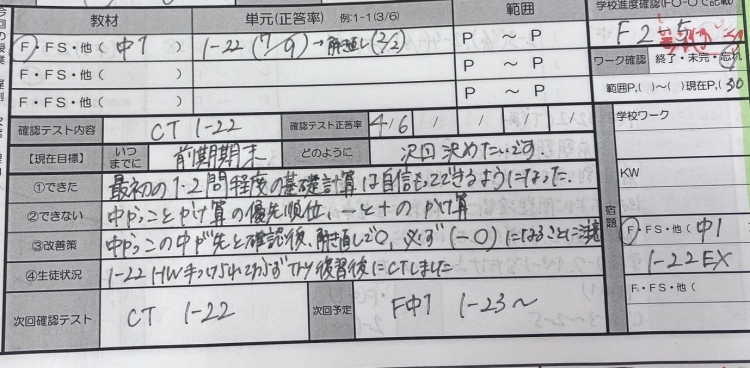 教材 単元(正答率) 例:1-1(3/6) 範囲 学校進度確認(FO-Oで記載)
F・FS・他( 中1 ) 1-22 (7/9) → 解き直し (2/2) P ~ P F 2-5
F・FS・他( ) P ~ P ワーク確認 終了・未完・忘れ
F・FS・他( ) P ~ P 範囲P,( )~( )現在P,( 30
確認テスト内容 CT 1-22 確認テスト正答率 4/6 / / / / 学校ワーク
【現在目標】 いつまでに 前期期末 どのように 次回決めたいです。
①できた 最初の1・2問程度の基礎計算は自信もってできるようになった。
KW
②できない 中かっことかけ算の優先順位、-と+のかけ算
宿題
③改善策 中かっこの中が先と確認後、解き直しで○、必ず(-○)になることに注意
F・FS・他( 中1
④生徒状況 1-22 HW手つけられておらず 復習後にCTしました
1-22EX
次回確認テスト CT 1-22 次回予定 F中1 1-23~
F・FS・他(